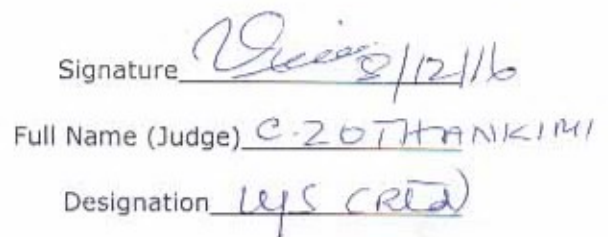 Signature 8/12/16
Full Name (Judge) C. ZOTHANKIMI
Designation (Retd)